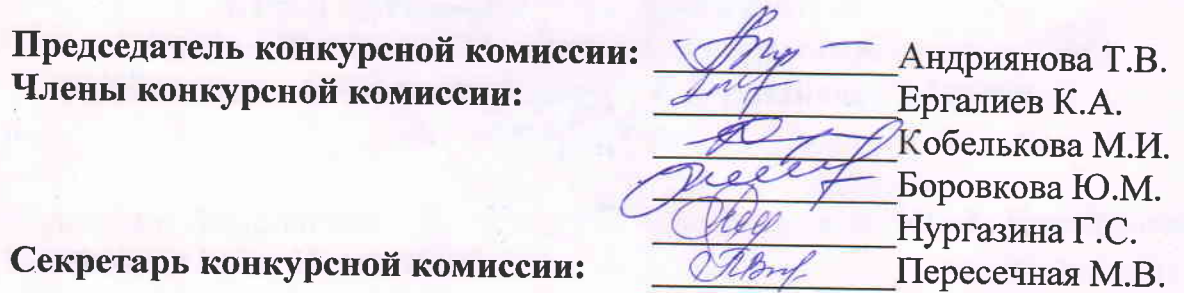 Председатель конкурсной комиссии: Андриянова Т.В.
Члены конкурсной комиссии: Ергалиев К.А.
Кобелькова М.И.
Боровкова Ю.М.
Нургазина Г.С.
Секретарь конкурсной комиссии: Пересечная М.В.